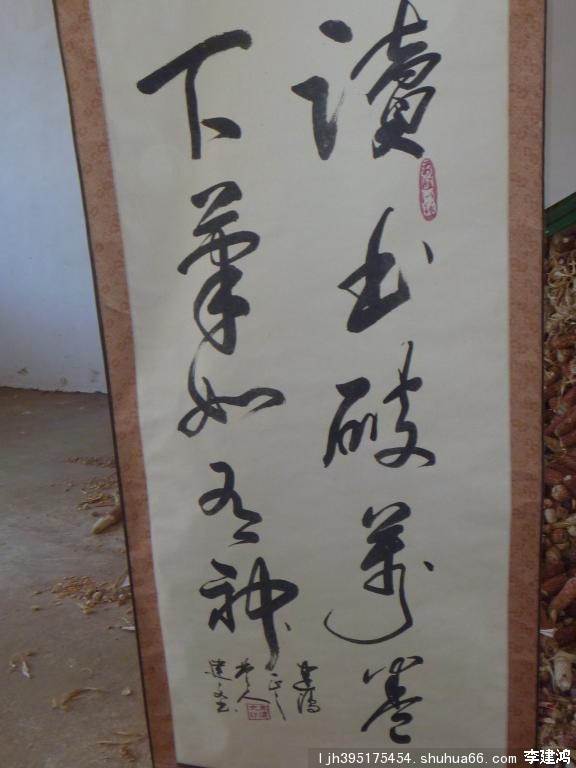 讀書破萬卷
下筆如有神
ljh395175454.shuhua66.com 李建鸿